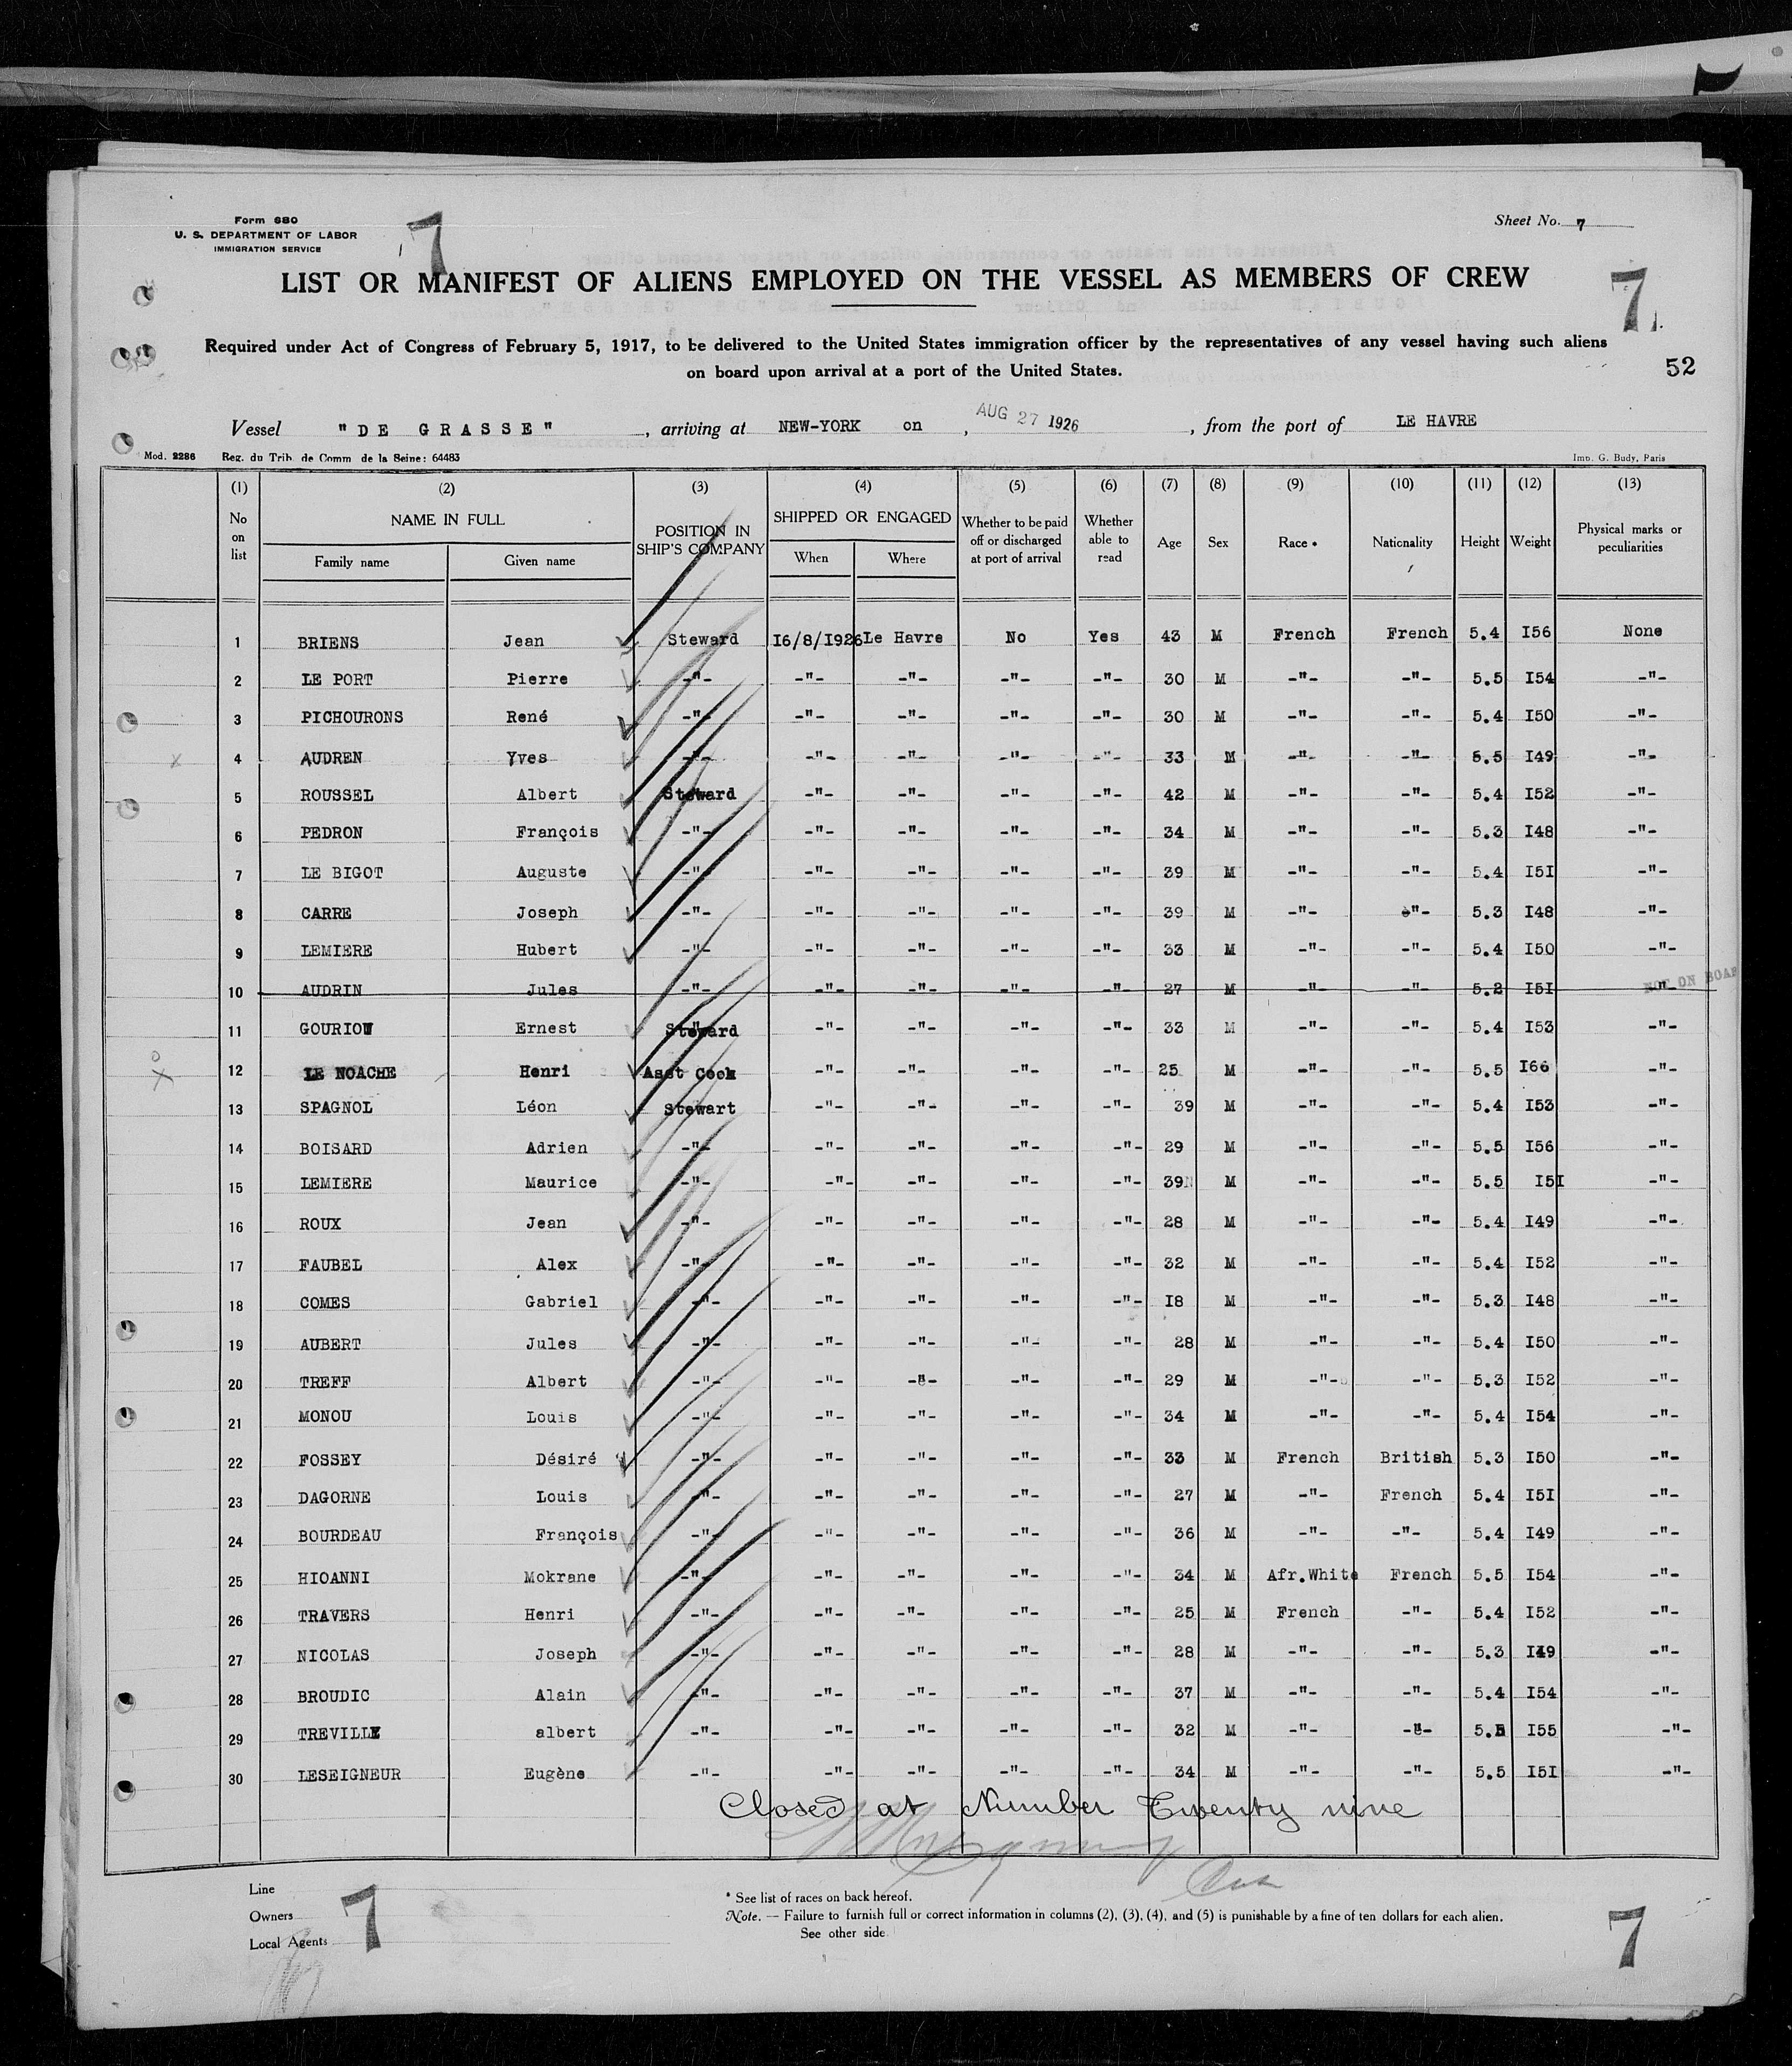 Form 680
U. S. DEPARTMENT OF LABOR
IMMIGRATION SERVICE
7
Sheet No. 7
LIST OR MANIFEST OF ALIENS EMPLOYED ON THE VESSEL AS MEMBERS OF CREW
7
Required under Act of Congress of February 5, 1917, to be delivered to the United States immigration officer by the representatives of any vessel having such aliens
on board upon arrival at a port of the United States.
52
Vessel "DE GRASSE", arriving at NEW-YORK on, AUG 27 1926, from the port of LE HAVRE
Mod. 2286 Reg. du Trib. de Comm de la Seine: 64483 Imp. G. Budy, Paris
(1) (2) (3) (4) (5) (6) (7) (8) (9) (10) (11) (12) (13)
No on list NAME IN FULL Family name Given name POSITION IN SHIP'S COMPANY SHIPPED OR ENGAGED When Where Whether to be paid off or discharged at port of arrival Whether able to read Age Sex Race * Nationality Height Weight Physical marks or peculiarities
1 BRIENS Jean Steward I6/8/I926 Le Havre No Yes 43 M French French 5.4 I56 None
2 LE PORT Pierre -"- -"- -"- -"- -"- 30 M -"- -"- 5.5 I54 -"-
3 PICHOURONS René -"- -"- -"- -"- -"- 30 M -"- -"- 5.4 I50 -"-
4 AUDREN Yves -"- -"- -"- -"- -"- 33 M -"- -"- 5.5 I49 -"-
5 ROUSSEL Albert Steward -"- -"- -"- -"- 42 M -"- -"- 5.4 I52 -"-
6 PEDRON François -"- -"- -"- -"- -"- 34 M -"- -"- 5.3 I48 -"-
7 LE BIGOT Auguste -"- -"- -"- -"- -"- 39 M -"- -"- 5.4 I5I -"-
8 CARRE Joseph -"- -"- -"- -"- -"- 39 M -"- -"- 5.3 I48 -"-
9 LEMIERE Hubert -"- -"- -"- -"- -"- 33 M -"- -"- 5.4 I50 -"-
10 AUDRIN Jules -"- -"- -"- -"- -"- 27 M -"- -"- 5.2 I5I -"- NOT ON BOAR
11 GOURIOU Ernest Steward -"- -"- -"- -"- 33 M -"- -"- 5.4 I53 -"-
12 LE NOACHE Henri Asst Cook -"- -"- -"- -"- 25 M -"- -"- 5.5 I66 -"-
13 SPAGNOL Léon Stewart -"- -"- -"- -"- 39 M -"- -"- 5.4 I53 -"-
14 BOISARD Adrien -"- -"- -"- -"- -"- 29 M -"- -"- 5.5 I56 -"-
15 LEMIERE Maurice -"- -"- -"- -"- -"- 39 M -"- -"- 5.5 I5I -"-
16 ROUX Jean -"- -"- -"- -"- -"- 28 M -"- -"- 5.4 I49 -"-
17 FAUBEL Alex -"- -"- -"- -"- -"- 32 M -"- -"- 5.4 I52 -"-
18 COMES Gabriel -"- -"- -"- -"- -"- I8 M -"- -"- 5.3 I48 -"-
19 AUBERT Jules -"- -"- -"- -"- -"- 28 M -"- -"- 5.4 I50 -"-
20 TREFF Albert -"- -"- -"- -"- -"- 29 M -"- -"- 5.3 I52 -"-
21 MONOU Louis -"- -"- -"- -"- -"- 34 M -"- -"- 5.4 I54 -"-
22 FOSSEY Désiré -"- -"- -"- -"- -"- 33 M French British 5.3 I50 -"-
23 DAGORNE Louis -"- -"- -"- -"- -"- 27 M -"- French 5.4 I5I -"-
24 BOURDEAU François -"- -"- -"- -"- -"- 36 M -"- -"- 5.4 I49 -"-
25 HIOANNI Mokrane -"- -"- -"- -"- -"- 34 M Afr.White French 5.5 I54 -"-
26 TRAVERS Henri -"- -"- -"- -"- -"- 25 M French -"- 5.4 I52 -"-
27 NICOLAS Joseph -"- -"- -"- -"- -"- 28 M -"- -"- 5.3 I49 -"-
28 BROUDIC Alain -"- -"- -"- -"- -"- 37 M -"- -"- 5.4 I54 -"-
29 TREVILLE albert -"- -"- -"- -"- -"- 32 M -"- -"- 5.5 I55 -"-
30 LESEIGNEUR Eugène -"- -"- -"- -"- -"- 34 M -"- -"- 5.5 I5I -"-
Closed at Number Twenty nine
Line
Owners
Local Agents
7
* See list of races on back hereof.
Note. — Failure to furnish full or correct information in columns (2), (3), (4), and (5) is punishable by a fine of ten dollars for each alien.
See other side
7